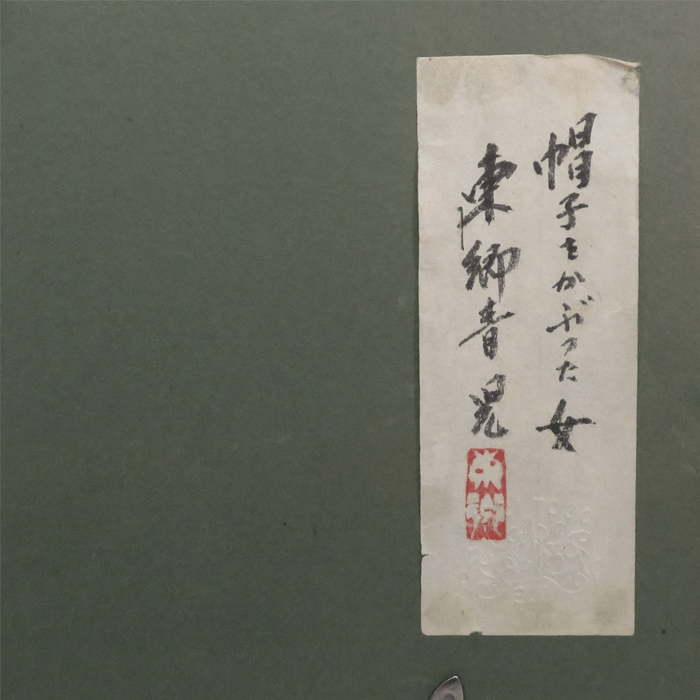 帽子をかぶった女
東郷青児
東郷